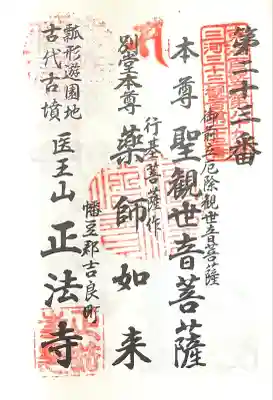 第二十三番
御前立厄除観世音菩薩
本尊 聖観世音菩薩
行基菩薩作
別堂本尊 薬師如来
幡豆郡吉良町
医王山 正法寺
瓢形遊園地
古代古墳